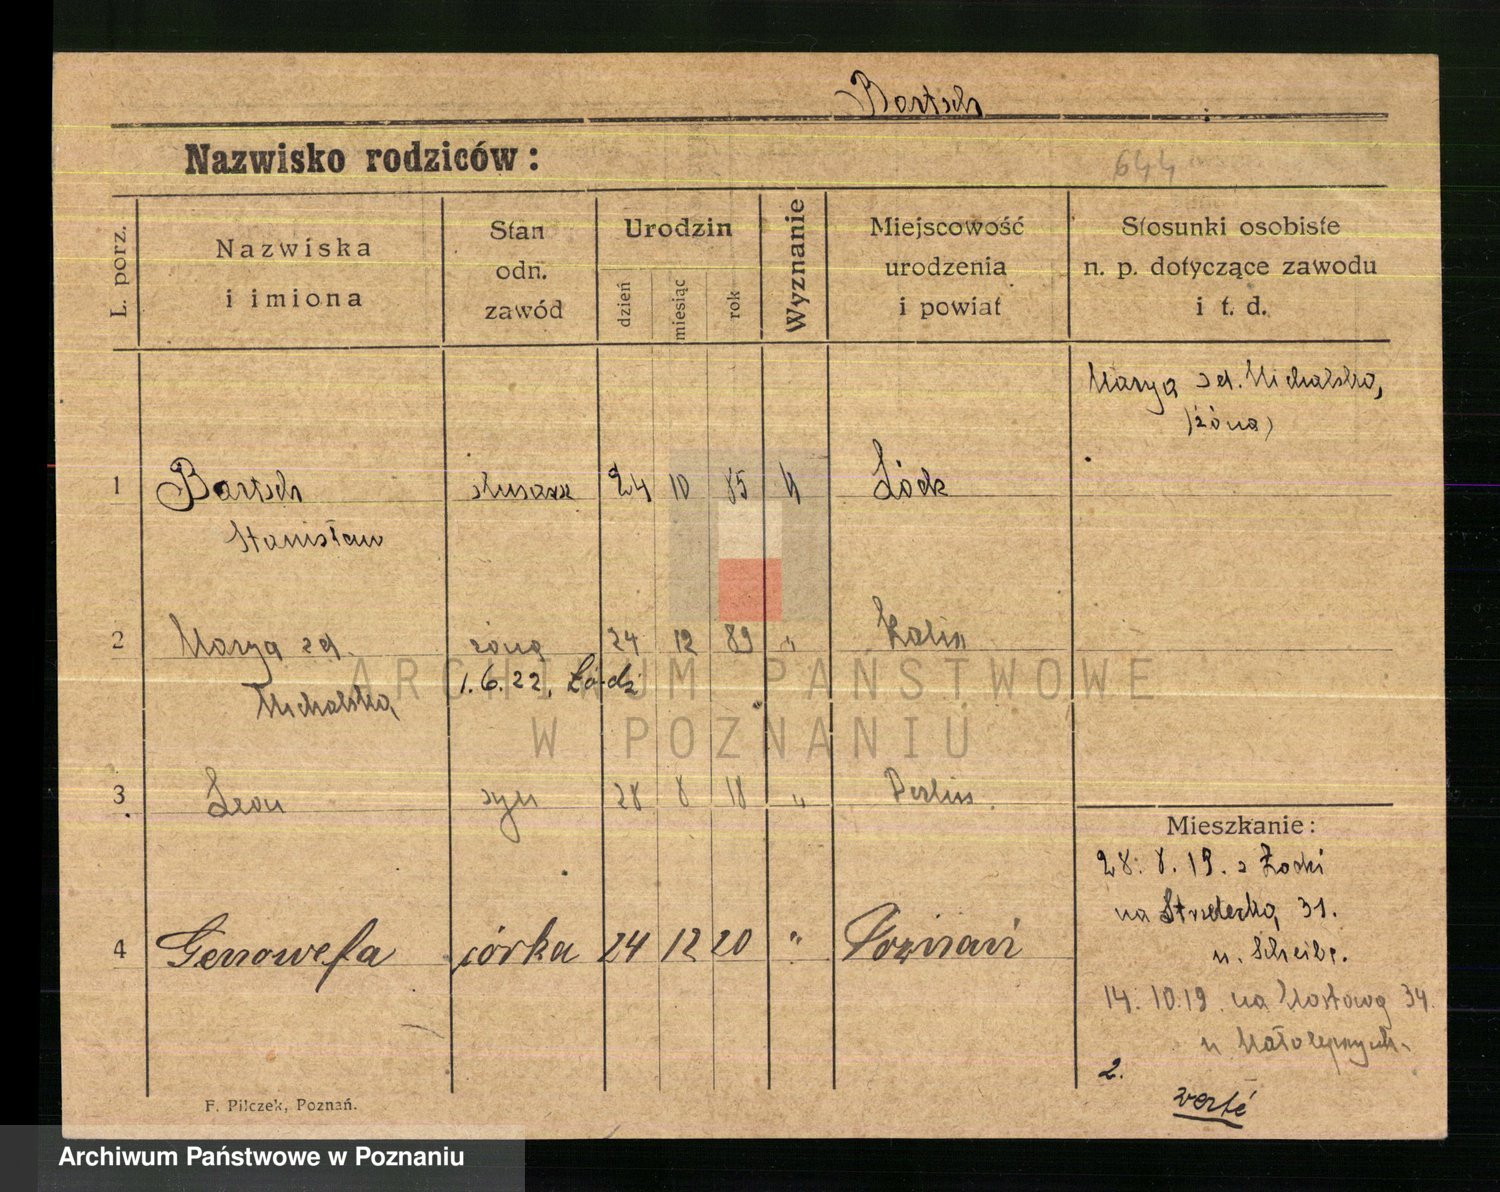 Bartsch
Nazwisko rodziców:
644
L. porz.
Nazwiska
i imiona
Stan
odn.
zawód
Urodzin
dzień
miesiąc
rok
Wyznanie
Miejscowość
urodzenia
i powiat
Stosunki osobiste
n. p. dotyczące zawodu
i t. d.
Marya zd. Michalska,
(żona)
1 Bartsch 24 10 85 Łódź
Stanisław
2 Marya zd. żona 24 12 89 "
Michalska 1.6.22, Łódź
3 Leon syn 28 8 18 " Berlin.
4 Genowefa córka 24 12 20 " Poznań
Mieszkanie:
28. 8. 19. z Łodzi
na Strzelecką 31.
u. Scheibe.
14. 10. 19. na Mostową 34.
u Małolepszych.
2.
verte
F. Pilczek, Poznań.
ARCHIWUM PAŃSTWOWE
W POZNANIU
Archiwum Państwowe w Poznaniu